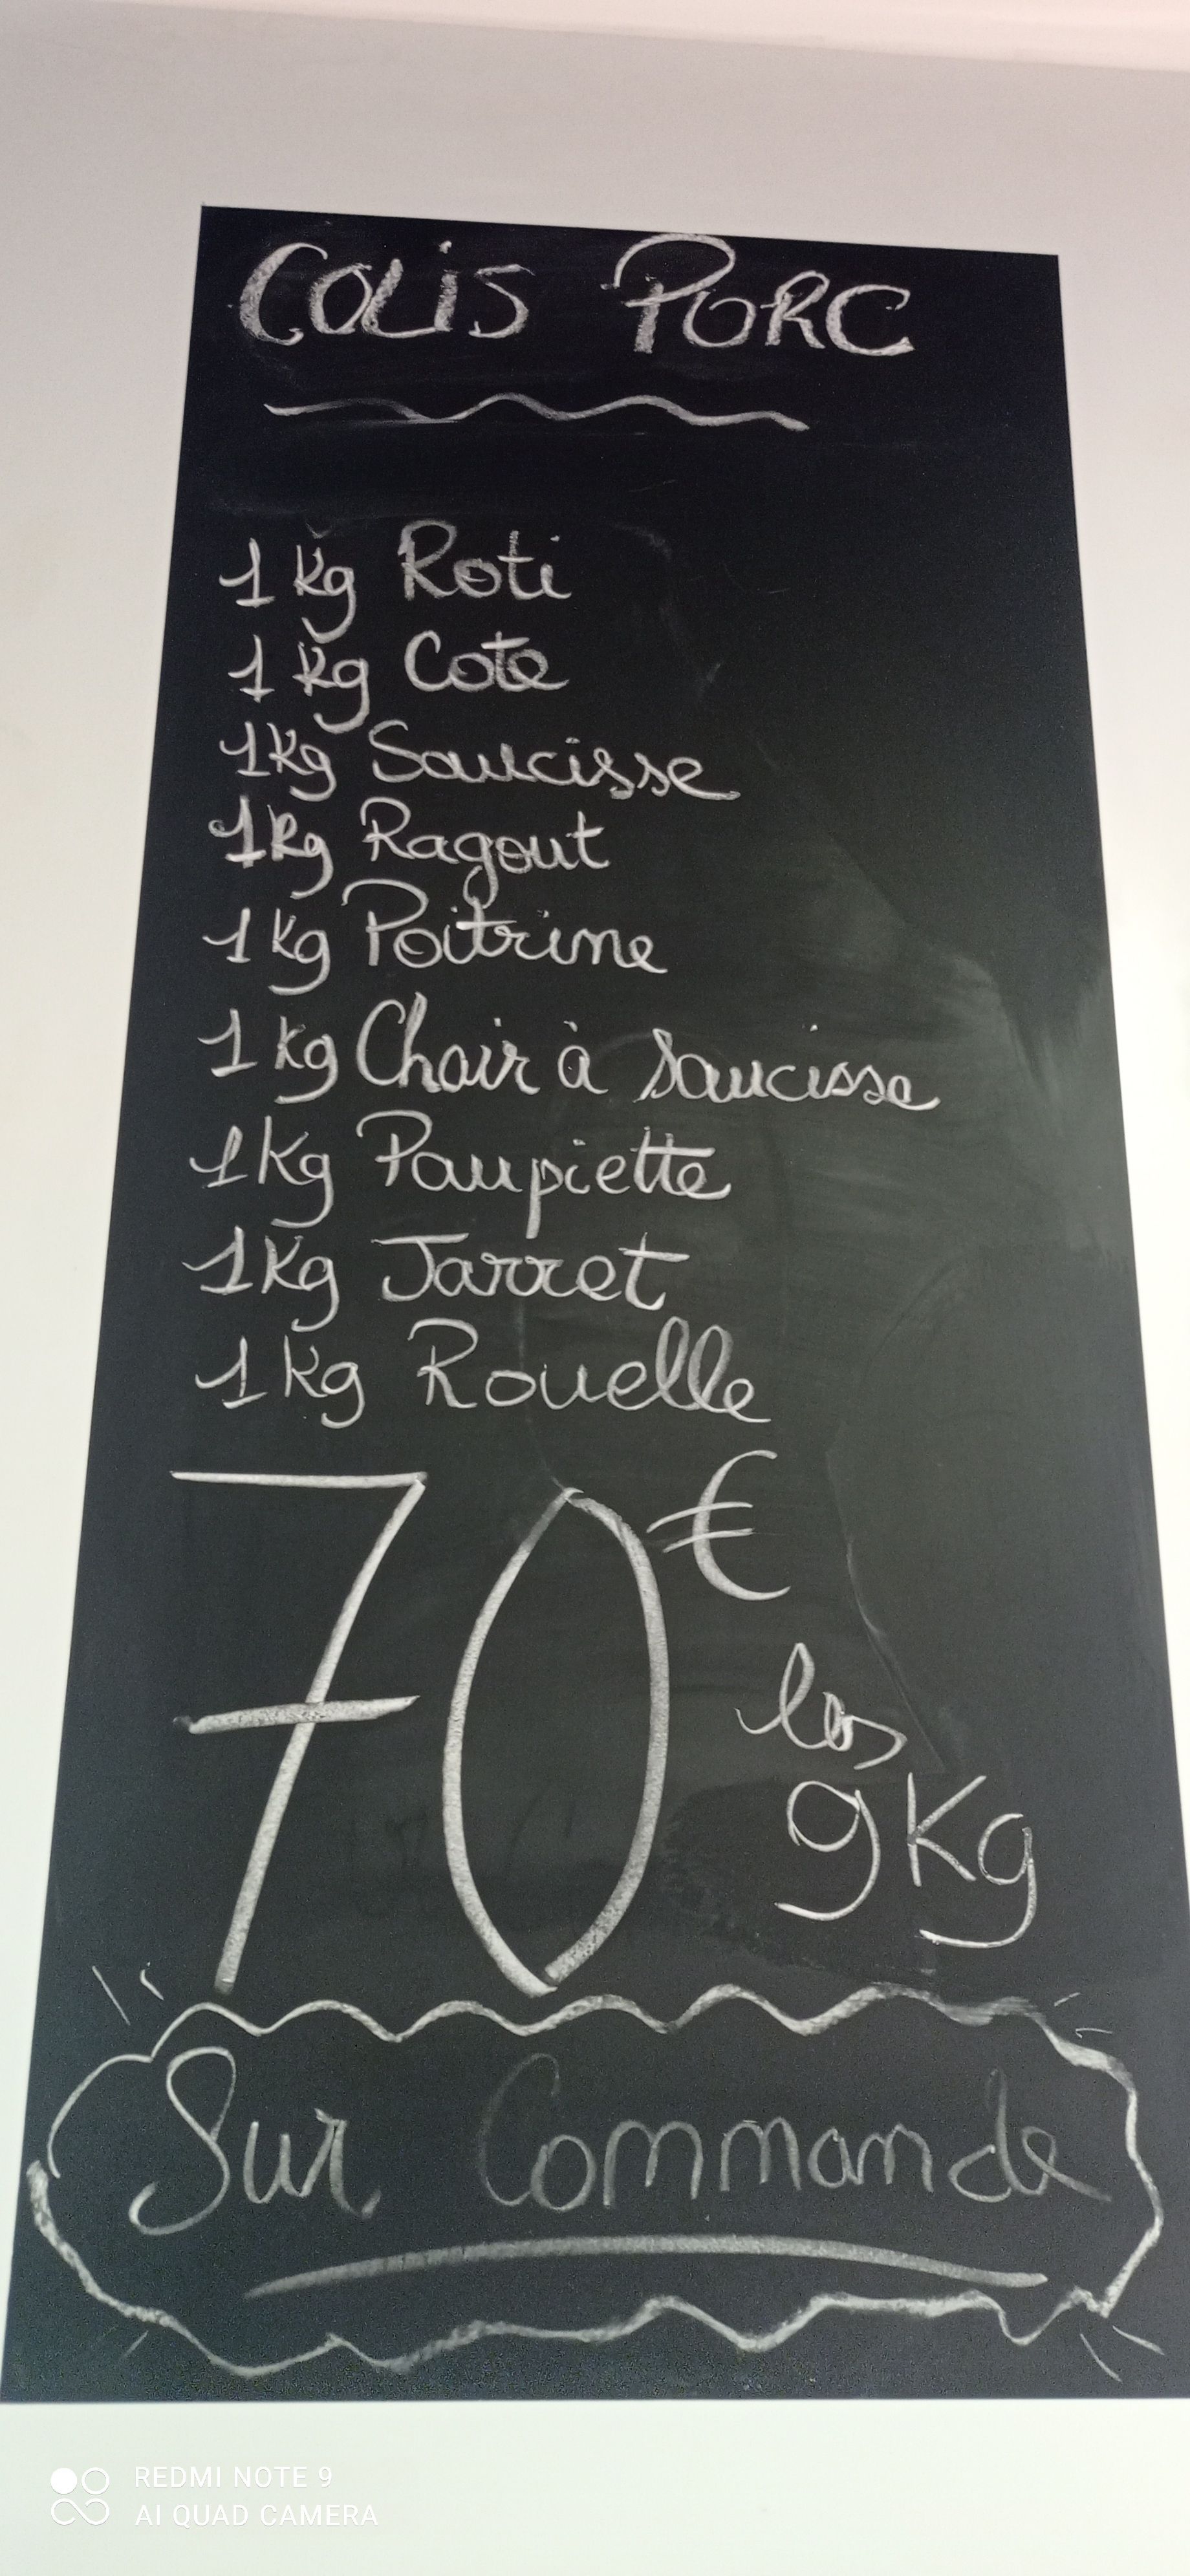 COLiS PORC
1 kg Roti
1 kg Cote
1kg Saucisse
1kg Ragout
1kg Poitrine
1 kg Chair à Saucisse
1Kg Paupiette
1Kg Jarret
1kg Rouelle
70€
les
9Kg
Sur Commande
REDMI NOTE 9
AI QUAD CAMERA